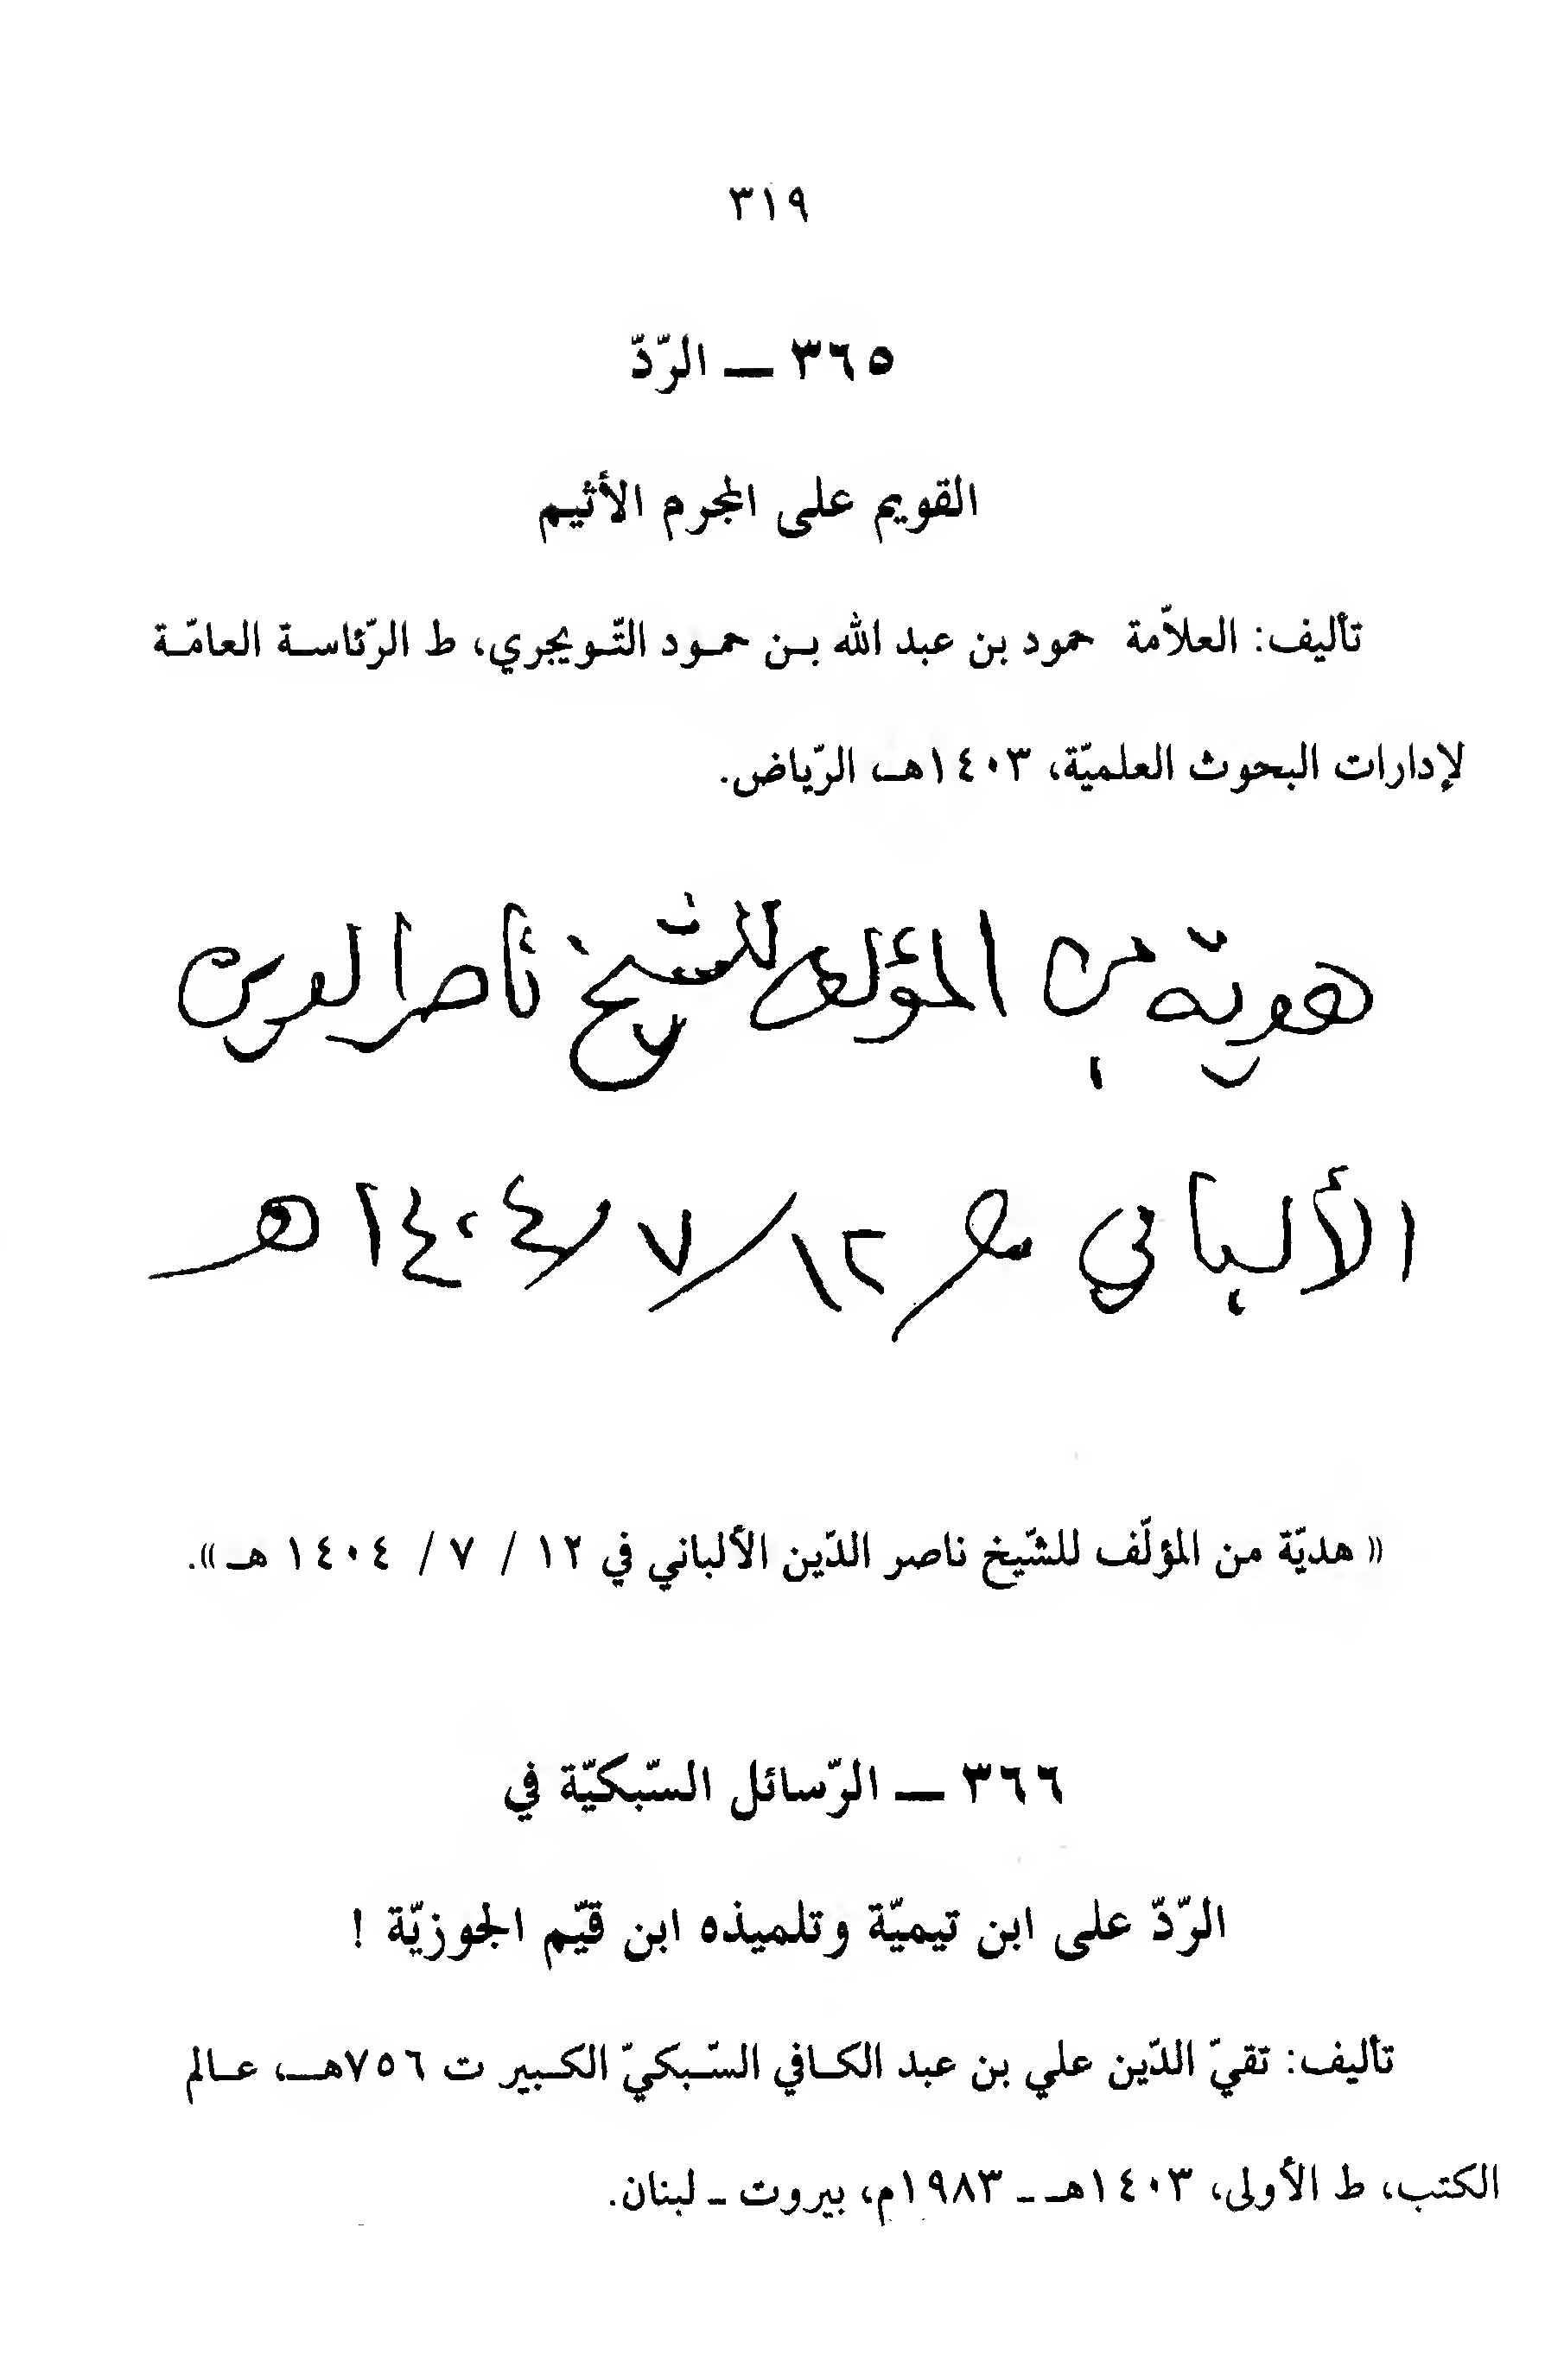 ٣١٩
٣٦٥ — الرّدّ
القويم على المجرم الأثيم
تأليف: العلاّمة حمود بن عبد الله بـن حمـود التّـويجري، ط الرّئاسـة العامّـة
لإدارات البحوث العلميّة، ١٤٠٣هـ، الرّياض.
هدية من المؤلف للشيخ ناصر الدين
الألباني في ١٢/٧/١٤٠٤ هـ
« هديّة من المؤلّف للشّيخ ناصر الدّين الألباني في ١٢ / ٧ / ١٤٠٤ هـ ».
٣٦٦ — الرّسائل السّبكيّة في
الرّدّ على ابن تيميّة وتلميذه ابن قيّم الجوزيّة !
تأليف: تقيّ الدّين علي بن عبد الكـافي السّـبكيّ الكـبير ت ٧٥٦هــ، عـالم
الكتب، ط الأولى، ١٤٠٣هـ ـ ١٩٨٣م، بيروت ـ لبنان.